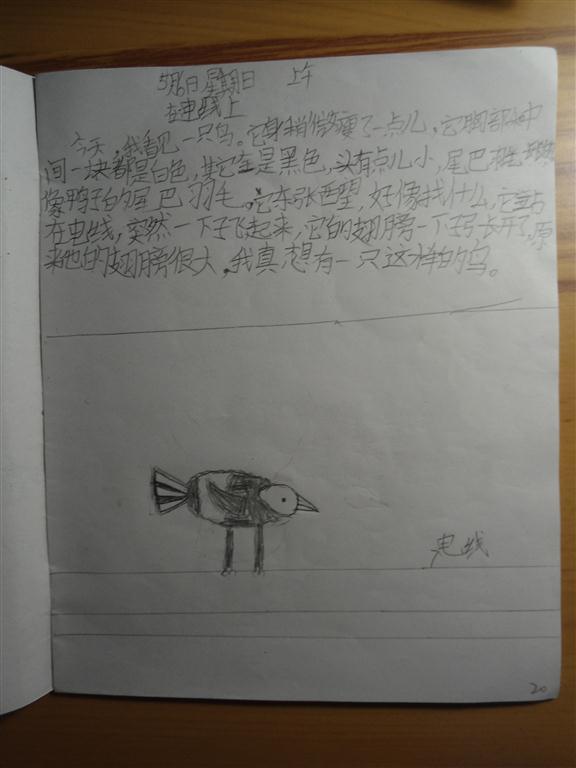 5月6日星期日 上午
在电线上
今天，我看见一只鸟。它身稍微瘦了一点儿，它胸部中
间一块都是白色，其它全是黑色，头有点儿小，尾巴
像鸭子的尾巴羽毛。它东张西望，好像找什么，它站
在电线，突然一下子飞起来，它的翅膀一下子张开了，原
来他的翅膀很大，我真想有一只这样的鸟。
电线
20